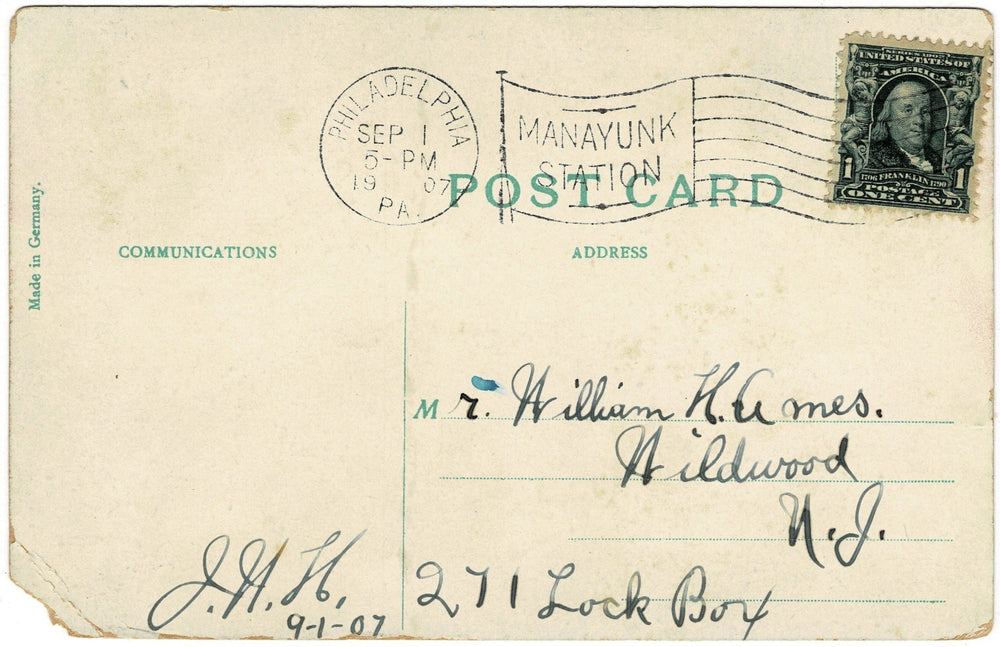 PHILADELPHIA
PA.
SEP 1
5-PM
19 07
MANAYUNK
STATION
SERIES 1902
UNITED STATES OF
AMERICA
1 1706 FRANKLIN 1790 1
POSTAGE
ONE CENT
POST CARD
Made in Germany.
COMMUNICATIONS
ADDRESS
Mr. William H. Ames.
Wildwood
N.J.
271 Lock Box
J.H.H.
9-1-07